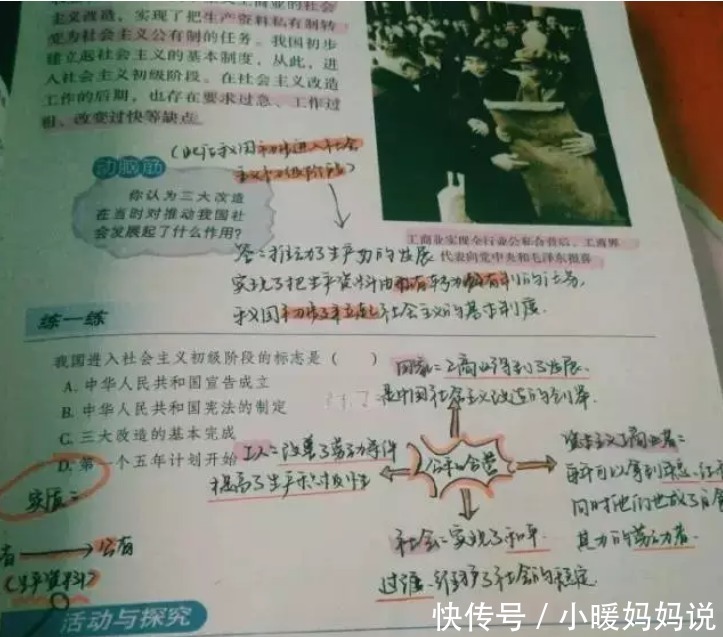 主义改造，实现了把生产资料私有制转
变为社会主义公有制的任务。我国初步
建立起社会主义的基本制度，从此，进
入社会主义初级阶段。在社会主义改造
工作的后期，也存在要求过急、工作过
粗、改变过快等缺点。
(此后我国初步进入社会
主义初级阶段)
动脑筋
你认为三大改造
在当时对推动我国社
会发展起了什么作用？
工商业实现全行业公私合营后，工商界
代表向党中央和毛泽东报喜
答：推动了生产力的发展
实现了把生产资料由
我国初步建立起社会主义的基本制度.
练一练
我国进入社会主义初级阶段的标志是（ ）
A. 中华人民共和国宣告成立
B. 中华人民共和国宪法的制定
C. 三大改造的基本完成
D. 第一个五年计划开始
国家：工商业得到了发展.
是中国社会主义改造的创举.
工人：改善了劳动条件
提高了生产积极性
公私合营
资本主义工商业者：
每年可以拿到
同时他们也成了自食
其力的劳动者.
社会：实现了和平
过渡.维护了社会的稳定.
实质：
公有
(生产资料)
活动与探究
快传号 / 小暖妈妈说